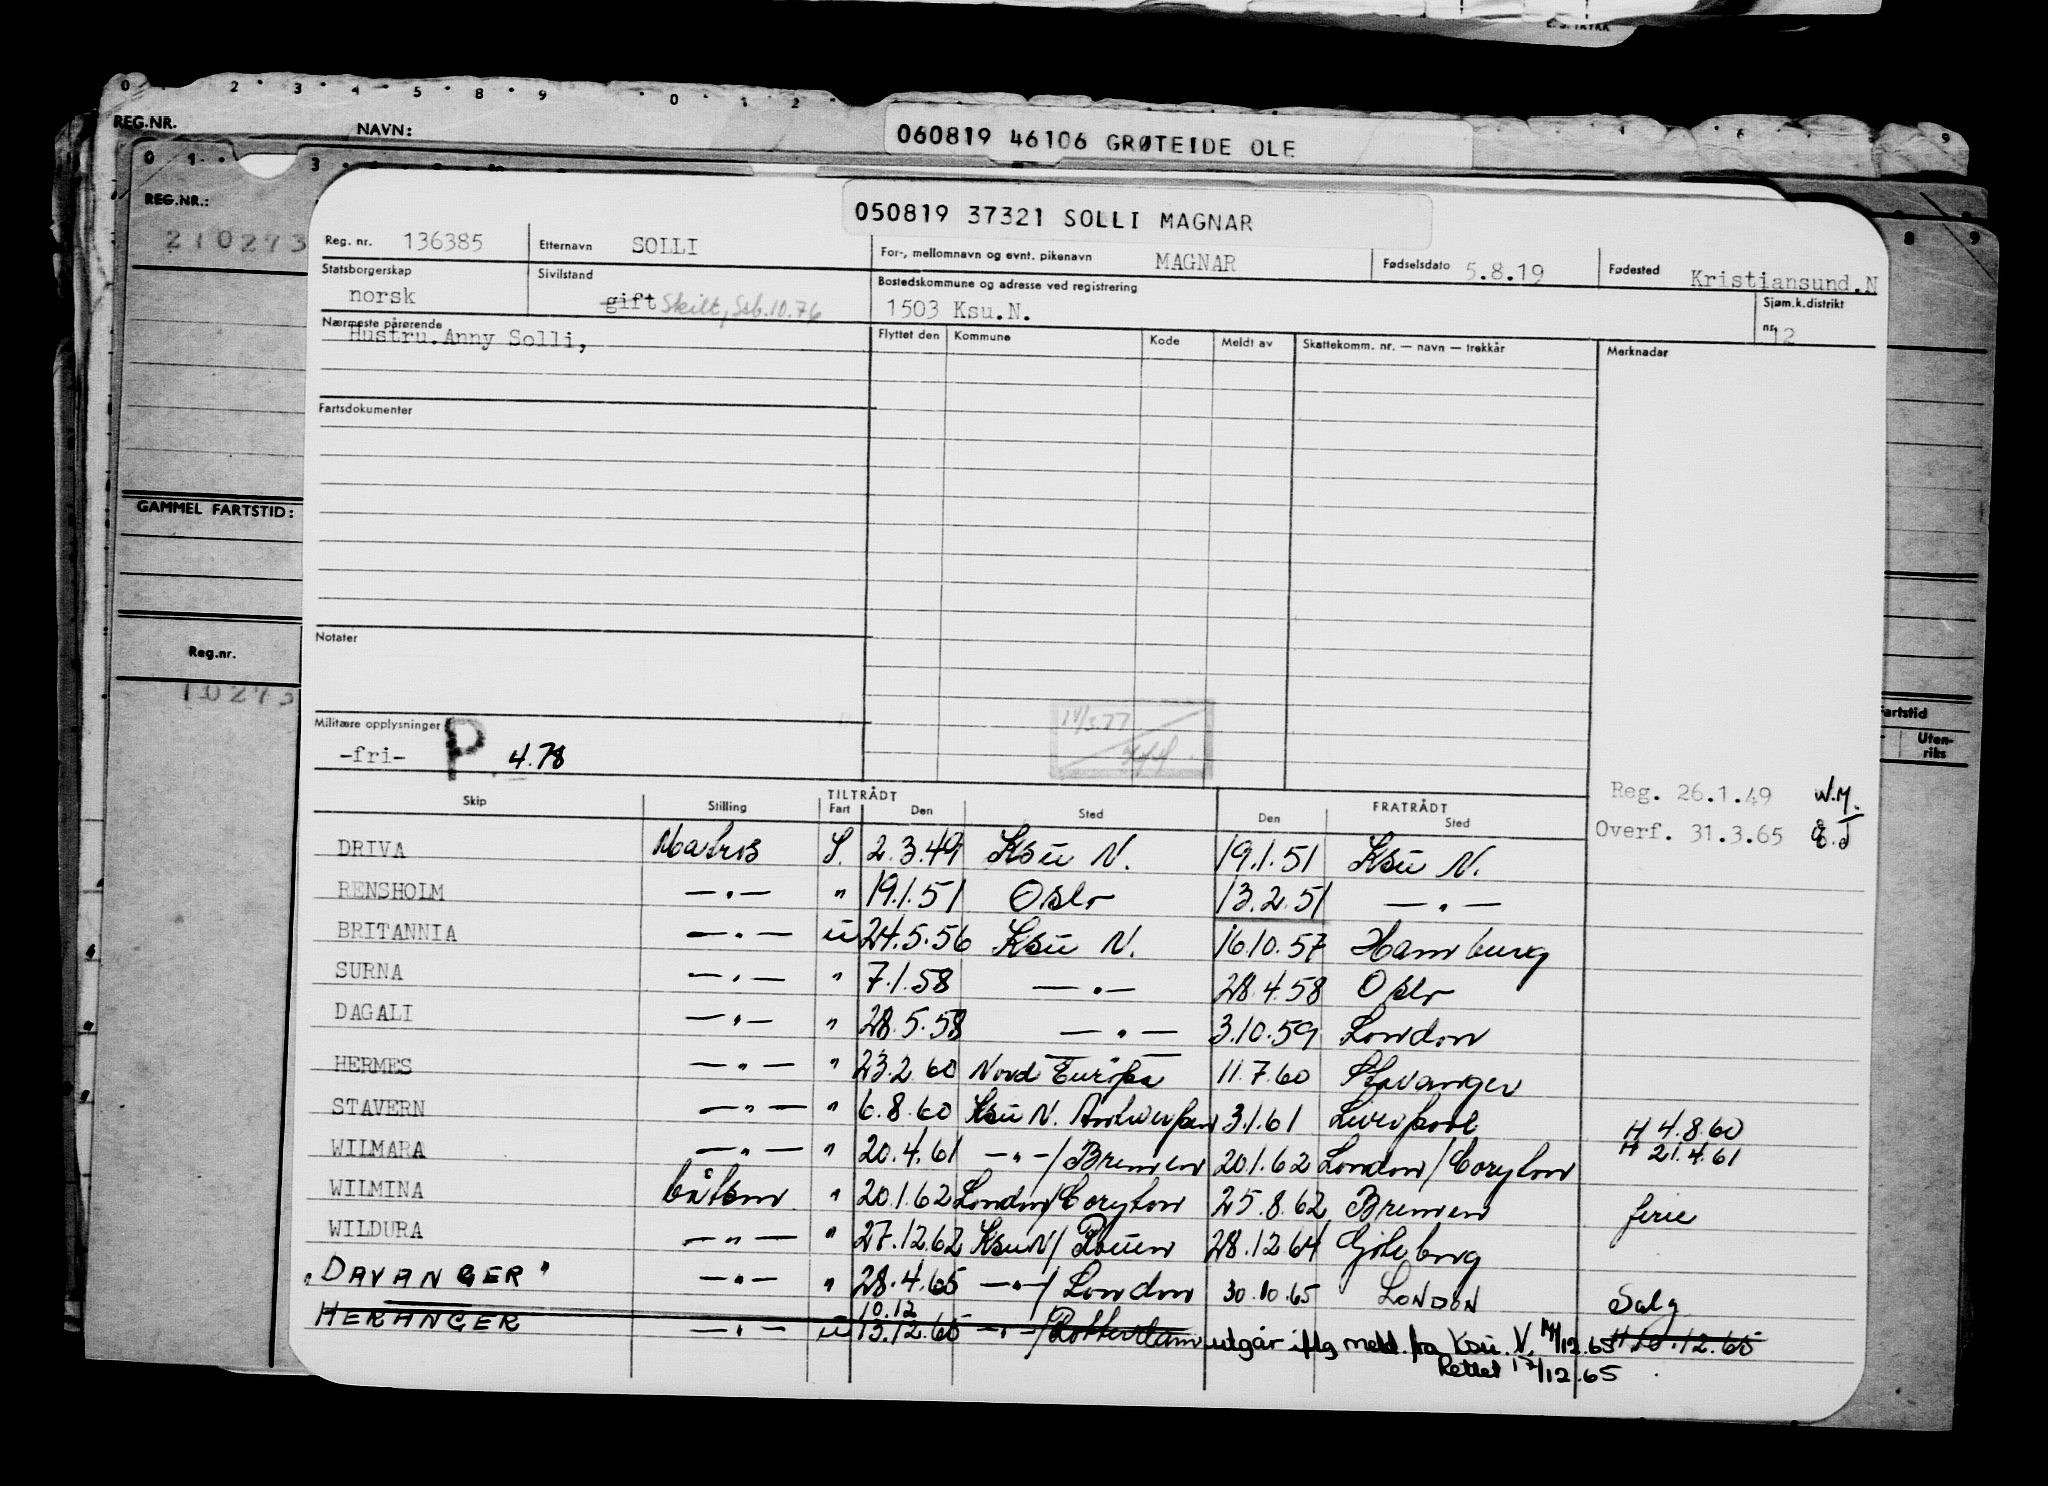 E. S. TRYKK
0 2 3 4 5 8 9 0 1 2 4 6 9
REG.NR. NAVN: 060819 46106 GRØTEIDE OLE
0 1 3
REG.NR.:
210273
GAMMEL FARTSTID:
Reg.nr.
10273
8 9
Fartstid
Uten-
riks
050819 37321 SOLLI MAGNAR
Reg. nr. 136385 Etternavn SOLLI For-, mellomnavn og evnt. pikenavn MAGNAR Fødselsdato 5.8.19 Fødested Kristiansund.N
Statsborgerskap norsk Sivilstand gift Skilt, Ssb.10.76 Bostedskommune og adresse ved registrering 1503 Ksu.N. Sjøm.k.distrikt nr. 12
Nærmeste pårørende Flyttet den Kommune Kode Meldt av Skattekomm. nr. — navn — trekkår Merknader
Hustru.Anny Solli,
Fartsdokumenter
Notater
Militære opplysninger
-fri- P. 4.78
14/3.77
Reg. 26.1.49 W.M.
Overf. 31.3.65
TILTRÅDT FRATRÅDT
Skip Stilling Fart Den Sted Den Sted
DRIVA Matros S. 2.3.49 Ksu N. 19.1.51 Ksu N.
RENSHOLM —"— " 19.1.51 Oslo 13.2.51 —"—
BRITANNIA —"— u 24.5.56 Ksu N. 16.10.57 Hamburg
SURNA —"— " 7.1.58 —"— 28.4.58 Oslo
DAGALI —"— " 28.5.58 —"— 3.10.59 London
HERMES —"— " 23.2.60 Nord Europa 11.7.60 Stavanger
STAVERN —"— " 6.8.60 Ksu N. Antwerpen 3.1.61 Liverpool H 4.8.60
WILMARA —"— " 20.4.61 —"—/Bremen 20.1.62 London/Coryton H 21.4.61
WILMINA båtsm " 20.1.62 London/Coryton 25.8.62 Bremen ferie
WILDURA —"— " 27.12.62 Ksu N/Rouen 28.12.64 Göteborg
"DAVANGER" —"— " 28.4.65 —"—/London 30.10.65 LONDON Salg
10.12
HERANGER —"— u 13.12.65 —"—/Rotterdam utgår iflg meld. fra Ksu. N. 14/12.65 H 10.12.65
Rettet 17/12.65